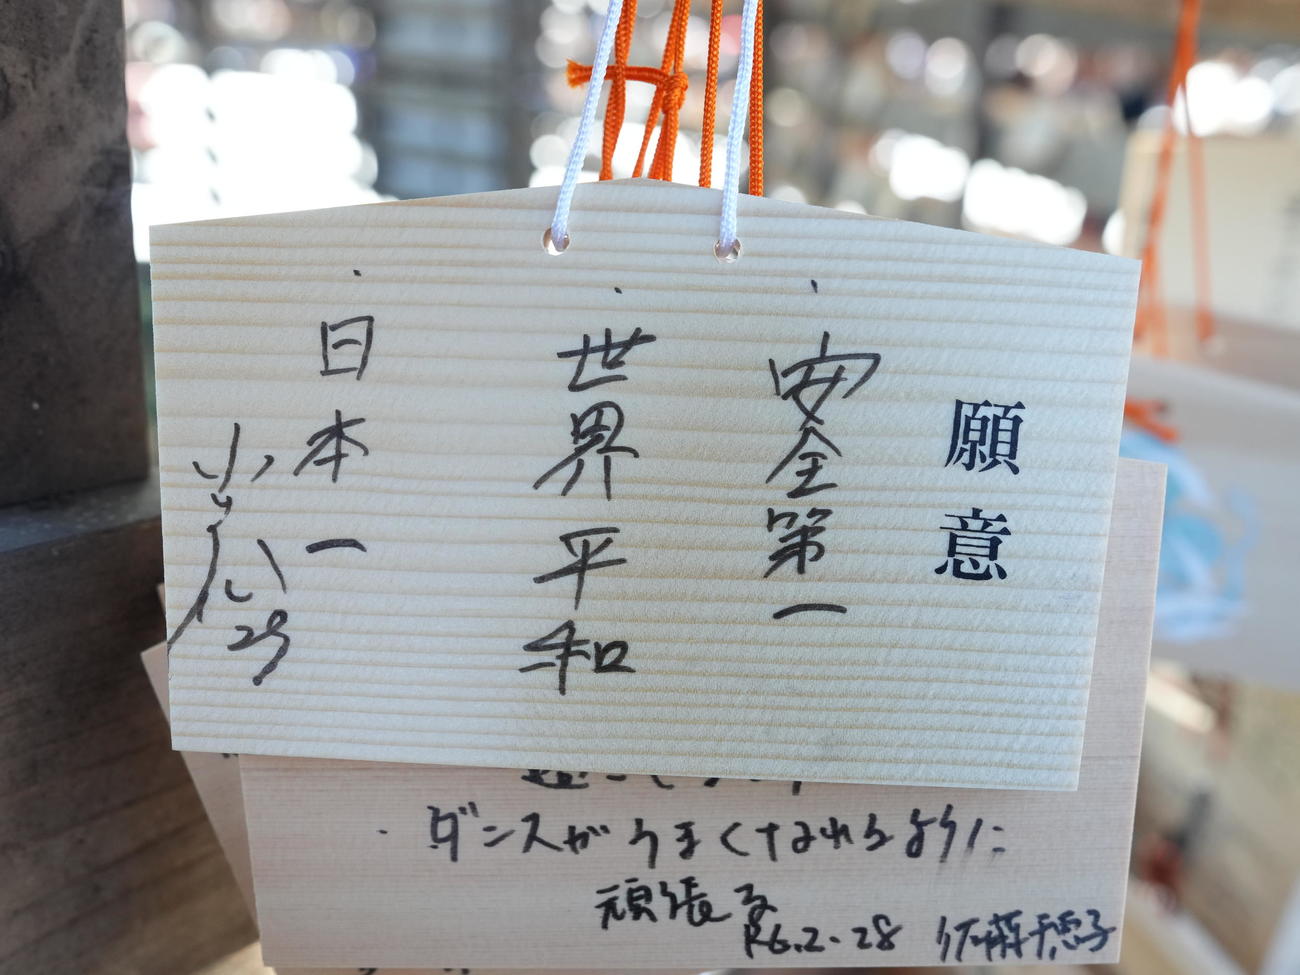 願意
安全第一
世界平和
日本一
ダンスがうまくなれるように
頑張る
R6.2.28 佐藤穂子